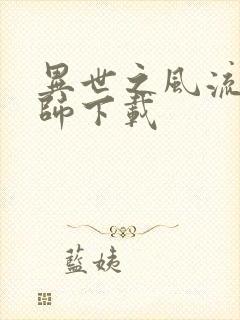 異世之風流
師下載
藍姨